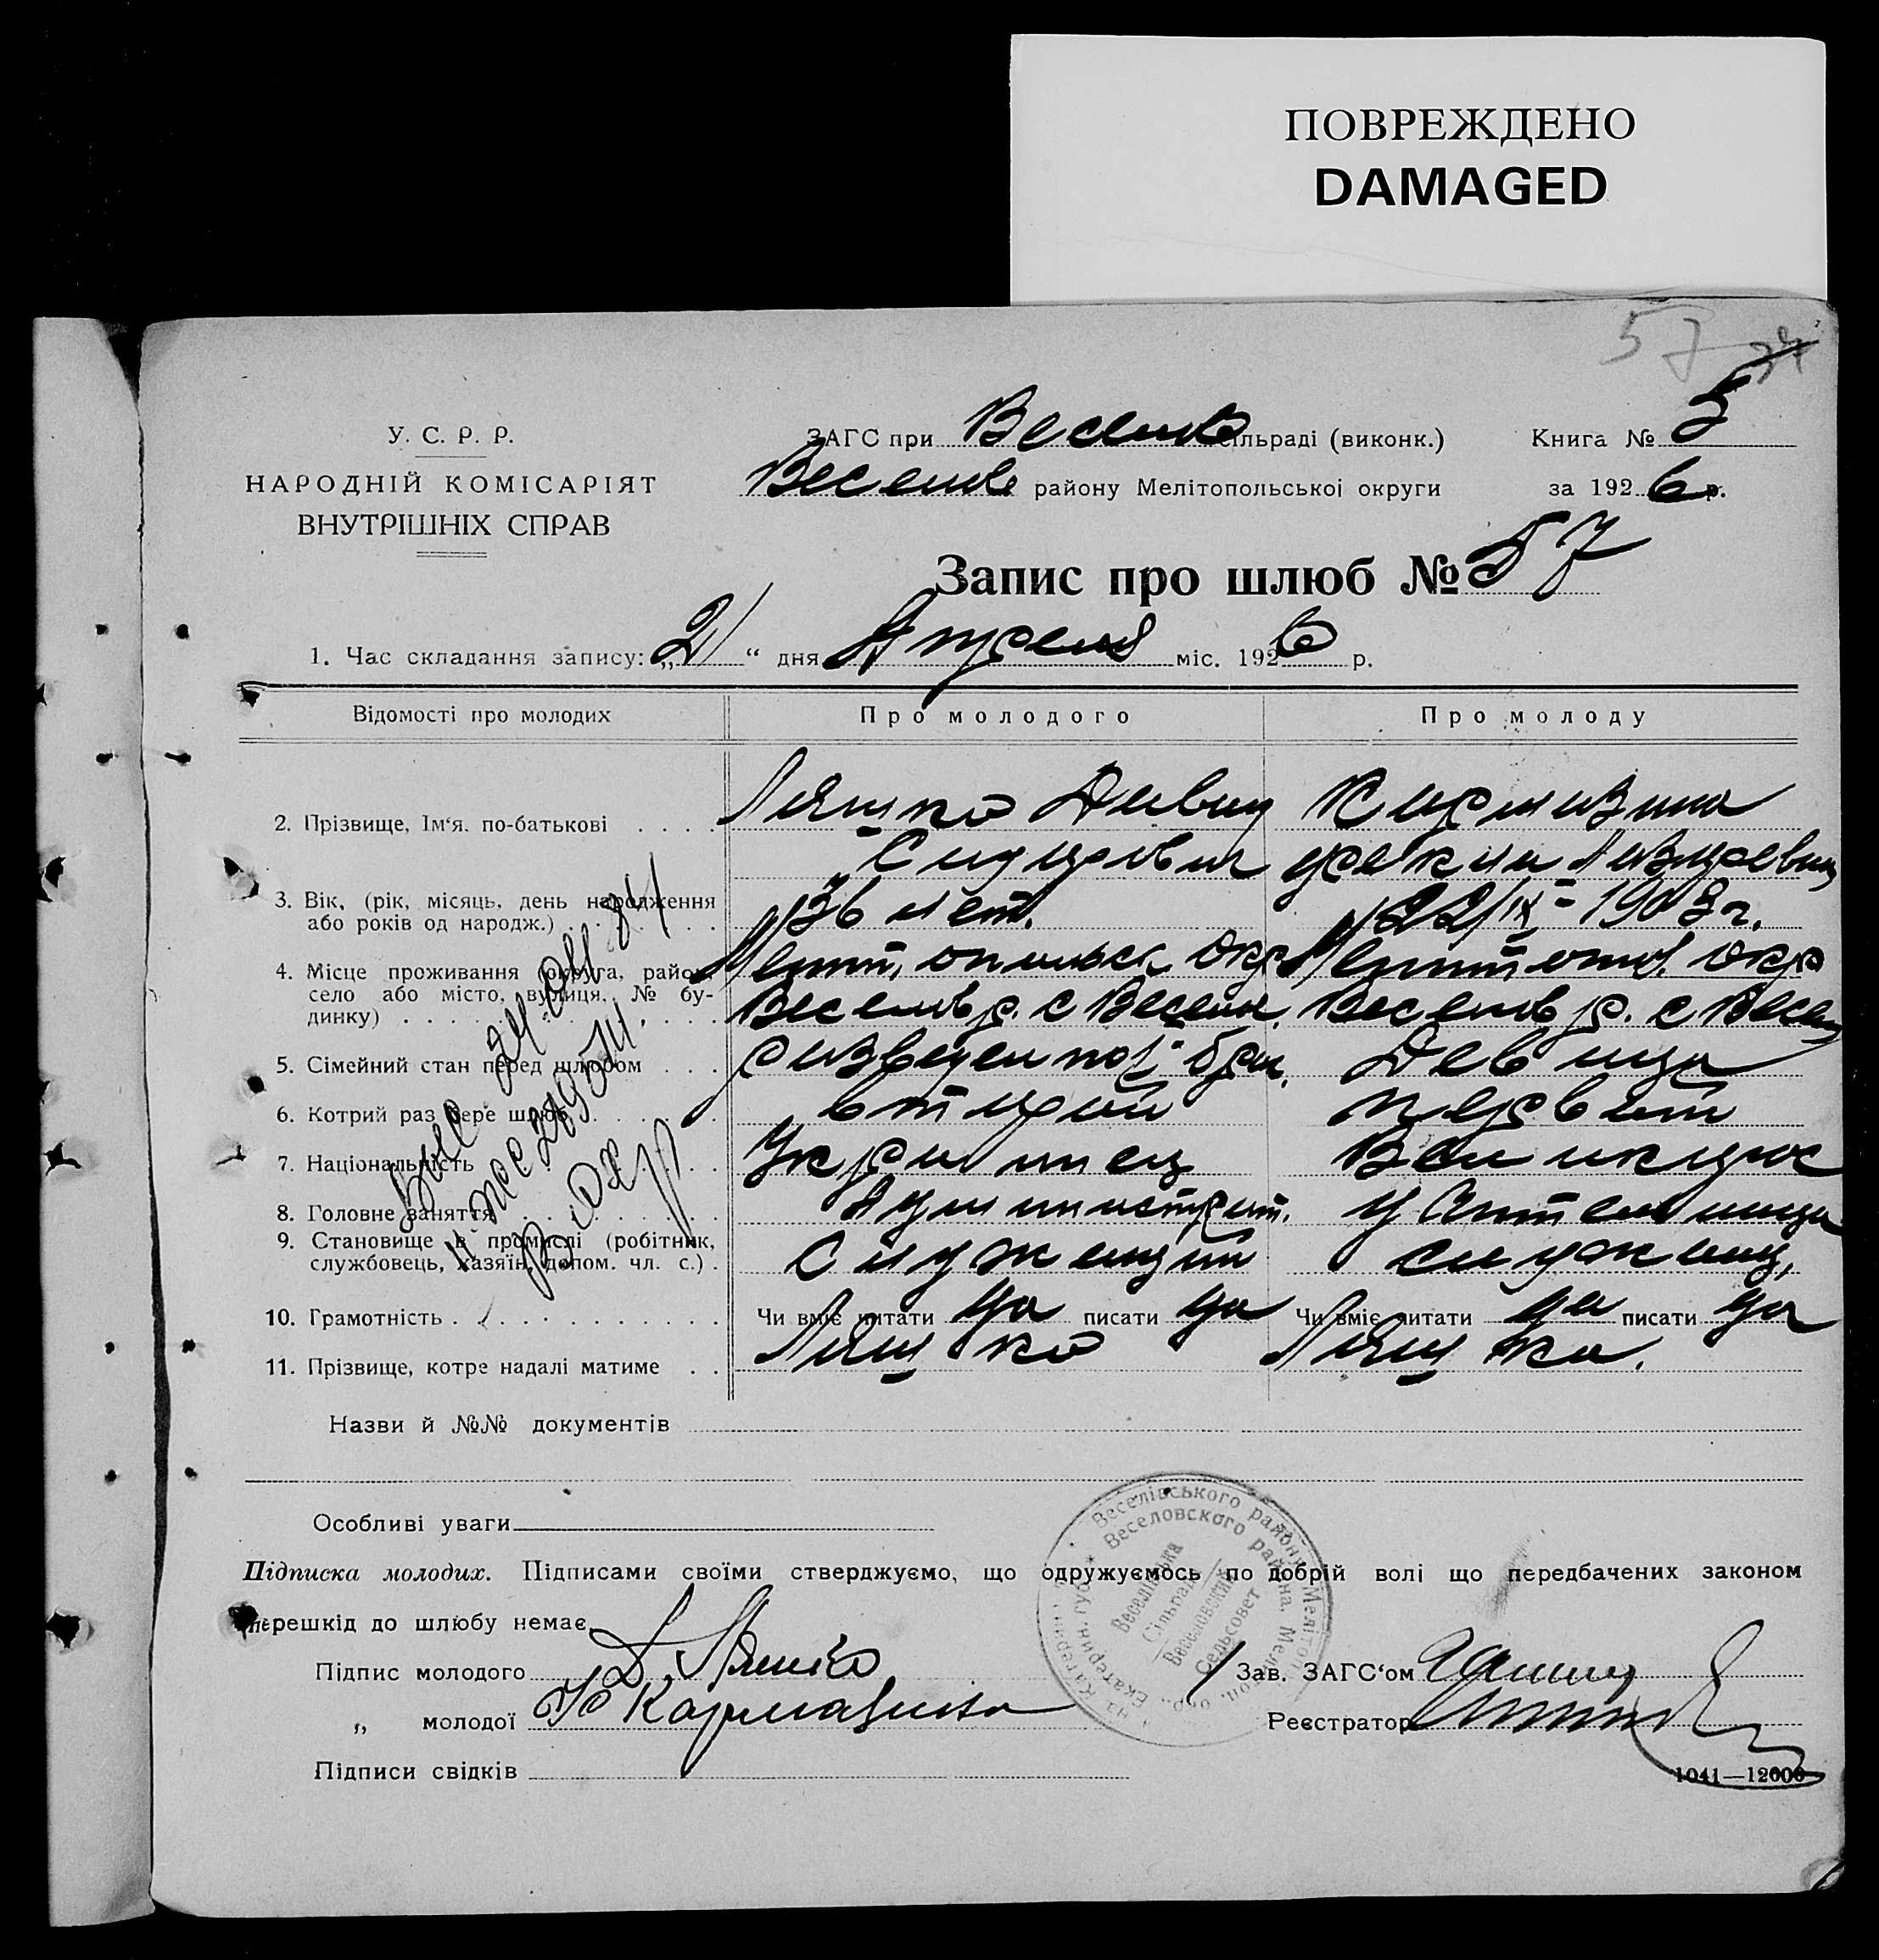 ПОВРЕЖДЕНО
DAMAGED
57
У. С. Р. Р.
НАРОДНІЙ КОМІСАРІЯТ
ВНУТРІШНІХ СПРАВ
ЗАГС при Веселов сільраді (виконк.) Книга № 5
Веселов району Мелітопольськоі округи за 1926 р.
Запис про шлюб № 57
1. Час складання запису: „21“ дня Апреля міс. 1926 р.
Відомості про молодих Про молодого Про молоду
2. Прізвище, Ім‘я. по-батькові Ляшко Давид Кармазина
Сидорович
3. Вік, (рік, місяць, день народження
або років од народж.) 36 лет. 22/IX – 1903 г.
4. Місце проживання (округа, район, Мелитопольск окр Мелитопол. окр
село або місто, вулиця, № бу-
динку) Веселов р. с Веселое. Веселов р. с Весел
5. Сімейний стан перед шлюбом Девица
6. Котрий раз бере шлюб вторый первый
7. Національність Украинец Великорос
8. Головне заняття Администрат. Учительница
9. Становище в промислі (робітник,
службовець, хазяїн, допом. чл. с.) Служащий служащ,
10. Грамотність Чи вміє читати да писати да Чи вміє читати да писати да
11. Прізвище, котре надалі матиме Ляшко Ляшко.
Назви й №№ документів
Особливі уваги
Підписка молодих. Підписами своїми стверджуємо, що одружуємось по добрій волі що передбачених законом
перешкід до шлюбу немає.
Підпис молодого Д. Ляшко
„ молодої Кармазина
Зав. ЗАГС‘ом
Реєстратор
Підписи свідків
1041—12000
Веселівського району Мелітоп.
Веселовского района, Мелитопол. окр., Екатерин. губ.
Веселівська
Сільрада
Веселовский
Сельсовет